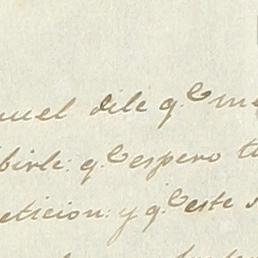 nuel dile q.e me
birle: q.e espero t
eticion: y q.e este s